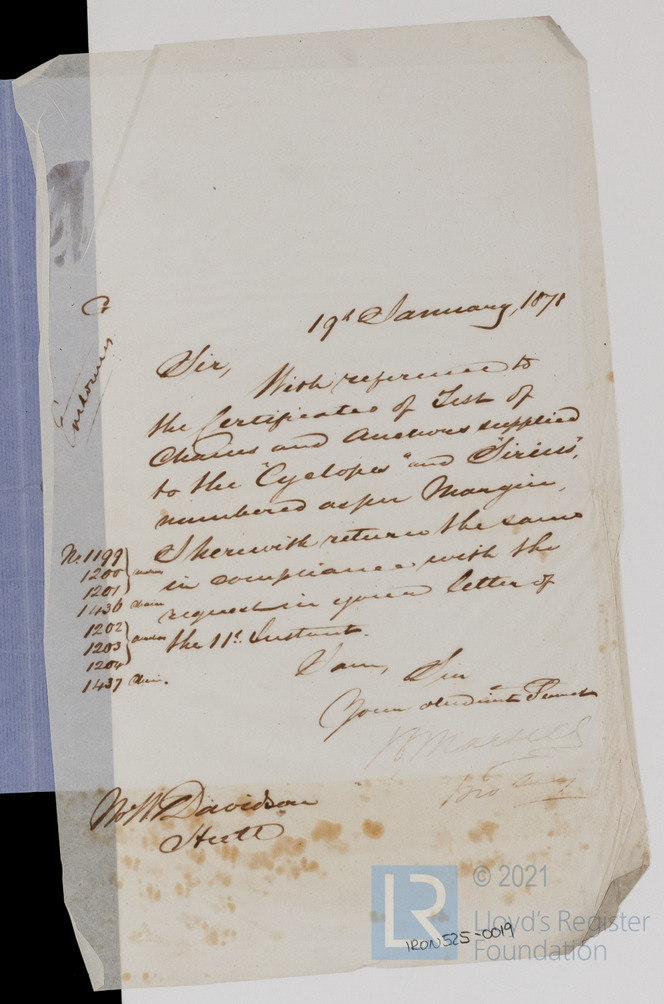 19th January, 1871
Enclosures
Sir,
With reference to
the Certificates of Test of
Chains and Anchors supplied
to the "Cyclopes" and "Sirius",
numbered as per Margin,
I herewith return the same
in compliance with the
request in your letter of
the 11th Instant.
No. 1199
1200
1201
1436 Chain
1202
1203
1204
1437 Chain.
I am, Sir
Your obedient Servant
Davidson
© 2021
LR
Lloyd's Register
Foundation
IRON525-0019